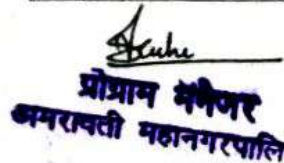 प्रोग्राम मॅनेजर
अमरावती महानगरपालि